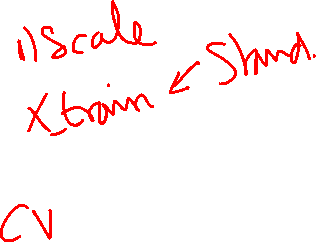 1) Scale
X_train ← Stand.
CV